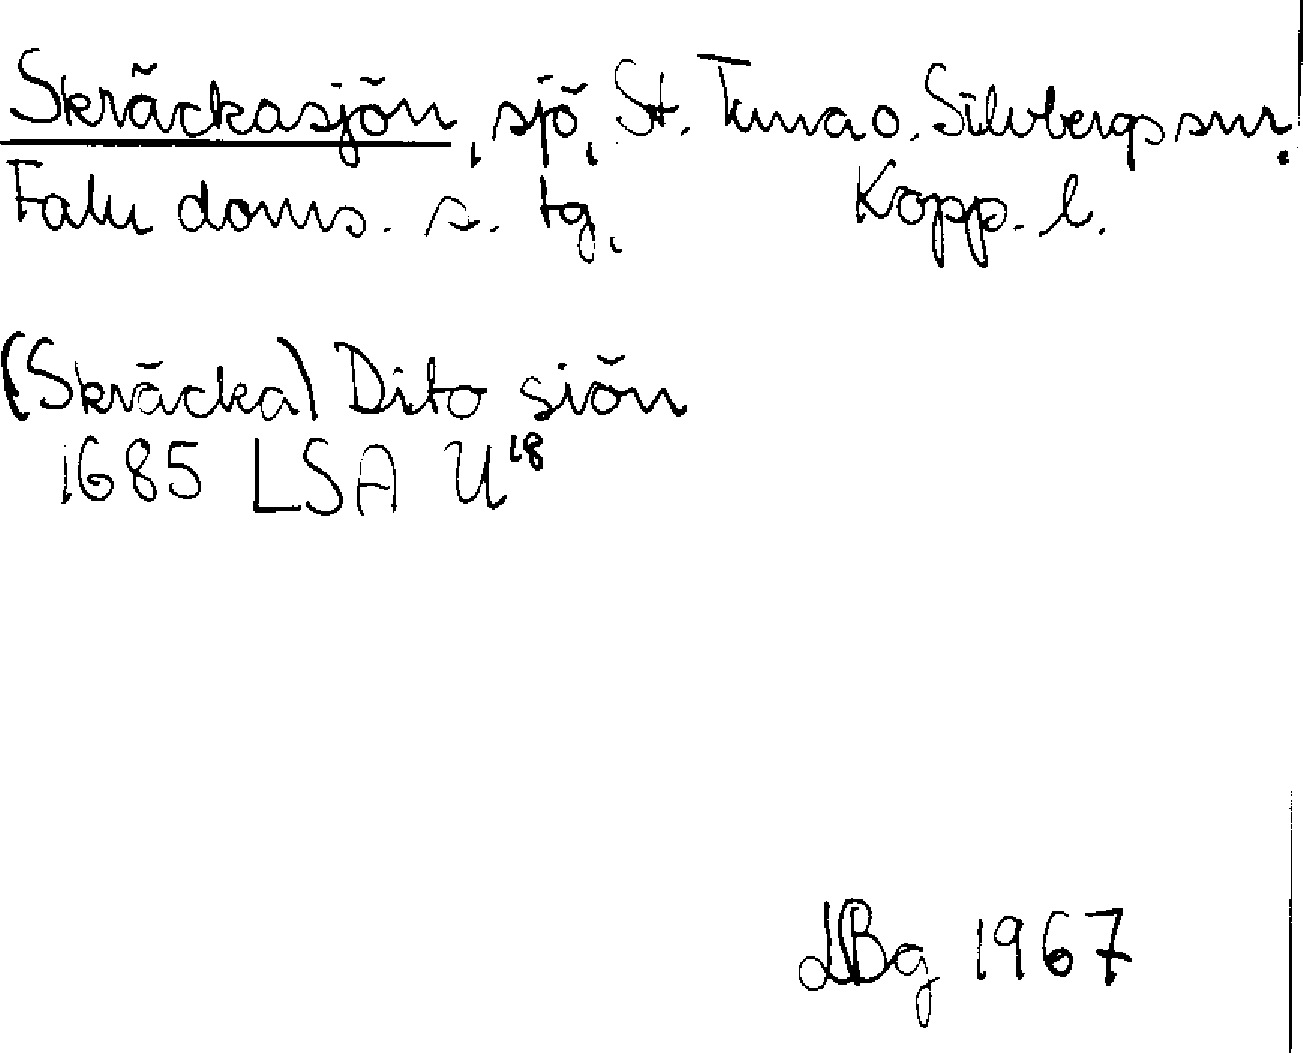 Skräckasjön, sjö, St. Tuna o. Silvbergs snr.
Falu doms. s. tg, Kopp. l.
(Skräcka) Dito siön
1685 LSA U18
LBg 1967